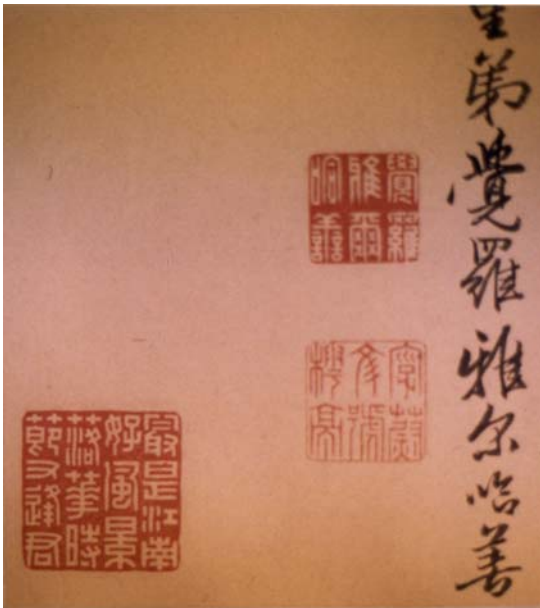 弟覺羅雅尔哈善
覺羅
雅爾
哈善
號
最是江南
好風景
落華時
節又逢君